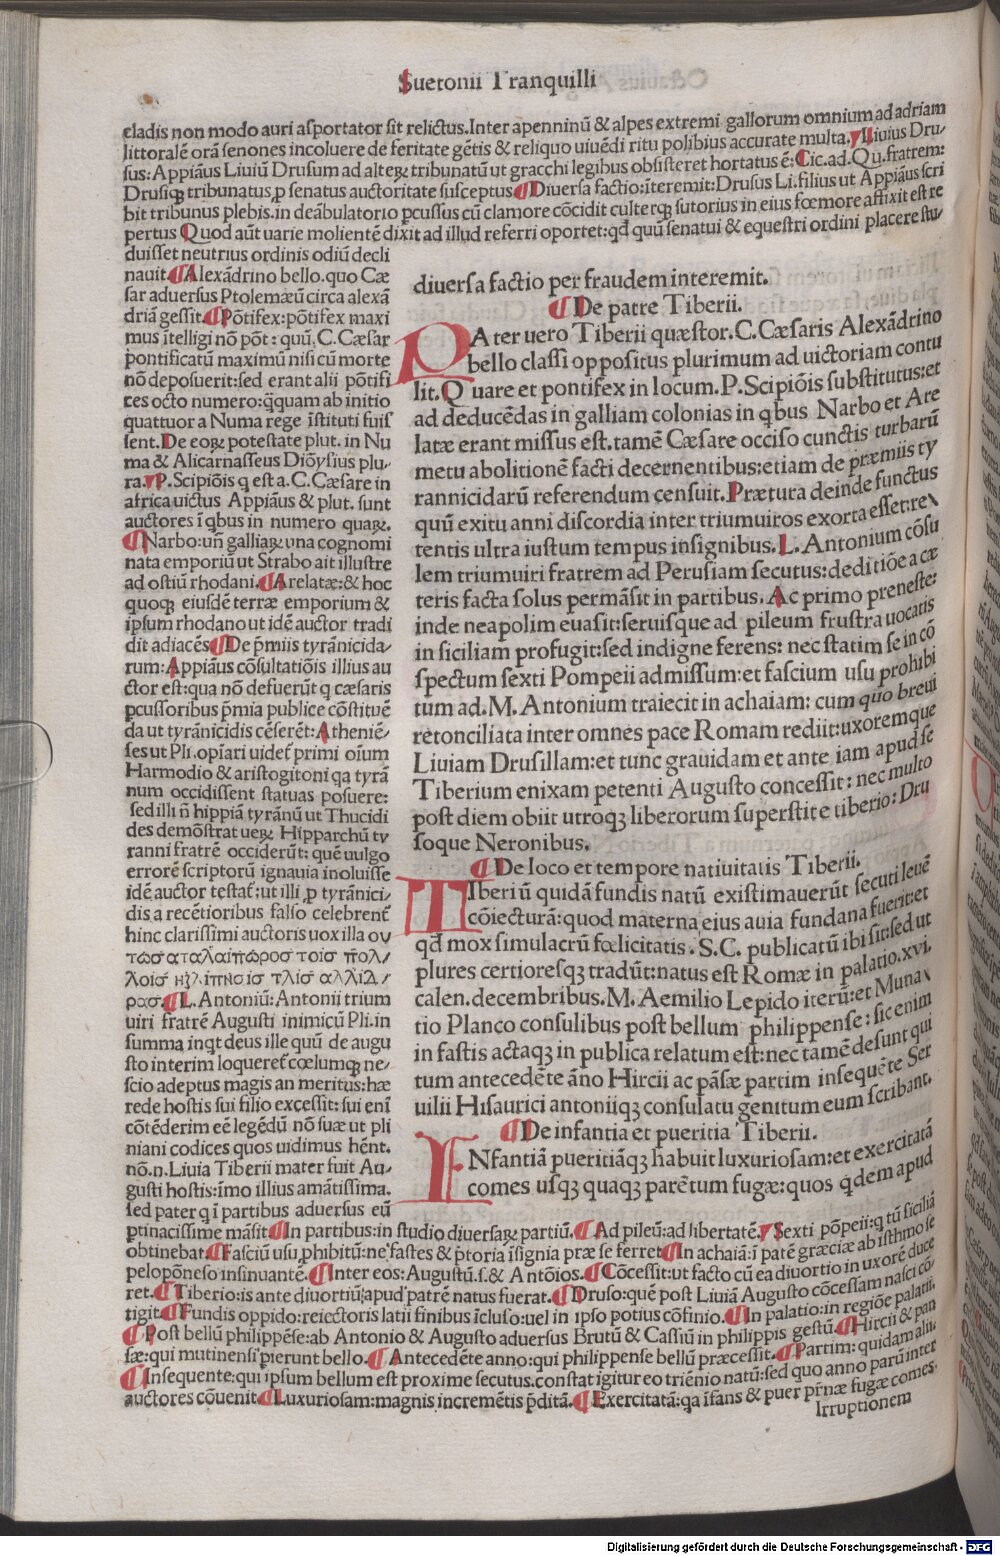 Suetonii Tranquilli
cladis non modo auri asportator sit relictus.Inter apenninū & alpes extremi gallorum omnium ad adriam
littoralē orā senones incoluere de feritate gētis & reliquo uiuēdi ritu polibius accurate multa.Liuius Dru-
sus:Appiāus Liuiū Drusum ad alteꝝ tribunatū ut gracchi legibus obsisteret hortatus ē:Cic.ad.Qu.fratrem:
Drusiqꝫ tribunatus,ꝓ senatus auctoritate susceptus Diuersa factio:īteremit:Drusus Li.filius ut Appiāus scri
bit tribunus plebis.in deābulatorio pcussus cū clamore cōcidit culterqꝫ sutorius in eius fœmore affixit est re
pertus Quod aūt uarie molientē dixit ad illud referri oportet:qđ quū senatui & equestri ordini placere stu-
duisset neutrius ordinis odiū decli
nauit.Alexādrino bello.quo Cæ
sar aduersus Ptolemæū circa alexā
driā gessit.Pōtifex:pōtifex maxi
mus ītelligi nō pōt:quū.C.Cæsar
pontificatū maximū nisi cū morte
nō deposuerit:sed erant alii pōtifi
ces octo numero:q̄quam ab initio
quattuor a Numa rege īstituti fuis
sent.De eoꝝ potestate plut.in Nu
ma & Alicarnasseus Diōysius plu-
ra.P.Scipiōis q est a.C.Cæsare in
africa uictus Appiāus & plut.sunt
auctores ī qbus in numero quaꝝ.
Narbo:un̄ galliaꝝ una cognomi
nata emporiū ut Strabo ait illustre
ad ostiū rhodani.Arelatæ:& hoc
quoqꝫ eiusdē terræ emporium &
ipsum rhodano ut idē auctor tradi
dit adiacēs De p̄miis tyrānicida-
rum:Appiāus cōsultatiōis illius au
ctor est:qua nō defuerūt q cæsaris
pcussoribus p̄mia publice cōstituē
da ut tyrānicidis cēserēt:Atheniē-
ses ut Pli.opīari uidet̄ primi oīum
Harmodio & aristogitoni qa tyrā
num occidissent statuas posuere:
sed illi n̄ hippiā tyrānū ut Thucidi
des demōstrat ueꝝ Hipparchū ty
ranni fratrē occiderūt:quē uulgo
errorē scriptorū ignauia inoluisse
idē auctor testat̄:ut illi ꝓ tyrānici-
dis a recētioribus falso celebrent̄
hinc clarissimi auctoris uox illa ου
L.Antoniū:Antonii trium
uiri fratrē Augusti inimicū Pli.in
summa inqt deus ille quū de augu
sto interim loqueret̄ cœlumqꝫ ne-
scio adeptus magis an meritus:hæ
rede hostis sui filio excessit:sui eni
cōtēderim eē legēdū nō suæ ut pli
niani codices quos uidimus hēnt.
nō.n.Liuia Tiberii mater fuit Au-
gusti hostis:īmo illius amātissima.
sed pater q ī partibus aduersus eū
diuersa factio per fraudem interemit.
De patre Tiberii.
PAter uero Tiberii quæstor.C.Cæsaris Alexādrino
bello classi oppositus plurimum ad uictoriam contu
lit.Quare et pontifex in locum.P.Scipiōis substitutus:et
ad deducēdas in galliam colonias in qbus Narbo et Are
latæ erant missus est.tamē Cæsare occiso cunctis turbarū
metu abolitionē facti decernentibus:etiam de præmiis ty
rannicidarū referendum censuit.Prætura deinde functus
quū exitu anni discordia inter triumuiros exorta esset:re
tentis ultra iustum tempus insignibus.L.Antonium cōsu
lem triumuiri fratrem ad Perusiam secutus:deditiōe a cæ
teris facta solus permāsit in partibus.Ac primo preneste:
inde neapolim euasit:seruisque ad pileum frustra uocatis
in siciliam profugit:sed indigne ferens:nec statim se in cō
spectum sexti Pompeii admissum:et fascium usu prohibi
tum ad.M.Antonium traiecit in achaiam:cum quo breui
reconciliata inter omnes pace Romam rediit:uxoremque
Liuiam Drusillam:et tunc grauidam et ante iam apud se
Tiberium enixam petenti Augusto concessit:nec multo
post diem obiit utroqꝫ liberorum superstite tiberio:Dru
soque Neronibus.
De loco et tempore natiuitatis Tiberii.
TIberiū quidā fundis natū existimauerūt secuti leuē
cōiecturā:quod materna eius auia fundana fuerit:et
qđ mox simulacrū fœlicitatis.S.C.publicatū ibi sit:sed ut
plures certioresqꝫ tradūt:natus est Romæ in palatio.xvi.
calen.decembribus.M.Aemilio Lepido iterū:et Muna
tio Planco consulibus post bellum philippense:sic enim
in fastis actaqꝫ in publica relatum est:nec tamē desunt qui
tum antecedēte āno Hircii ac pāsæ partim insequēte Ser
uilii Hisaurici antoniiqꝫ consulatu genitum eum scribant.
De infantia et pueritia Tiberii.
INfantiā pueritiāqꝫ habuit luxuriosam:et exercitatā
comes usqꝫ quaqꝫ parētum fugæ:quos qdem apud
ptinacissime māsit In partibus:in studio diuersaꝝ partiū.Ad pileū:ad libertatē.Sexti pōpeii:q tū siciliā
obtinebat Fasciū usu ꝓhibitū:ne fastes & p̄toria īsignia præ se ferret In achaiā:ī patē græciæ ab isthmo se
peloponeso insinuantē.Inter eos:Augustū.s.& Antōios.Cōcessit:ut facto cū ea diuortio in uxorē duce
ret.Tiberio:is ante diuortiū apud patrē natus fuerat.Druso:quē post Liuiā Augusto cōcessam nasci cō
tigit.Fundis oppido:reiectoris latii finibus īcluso:uel in ipso potius cōfinio.In palatio:in regiōe palatii.
Post bellū philippēse:ab Antonio & Augusto aduersus Brutū & Cassiū in philippis gestū.Hircii & pan
sæ:qui mutinensi pierunt bello.Antecedēte anno:qui philippense bellū præcessit.Partim:quidam alii.
Insequente:qui ipsum bellum est proxime secutus.constat igitur eo triēnio natū:sed quo anno parū inter
auctores cōuenit Luxuriosam:magnis incremētis p̄ditā.Exercitatā:qa īfans & puer pr̄næ fugæ comes.
Irruptionem
Digitalisierung gefördert durch die Deutsche Forschungsgemeinschaft - DFG